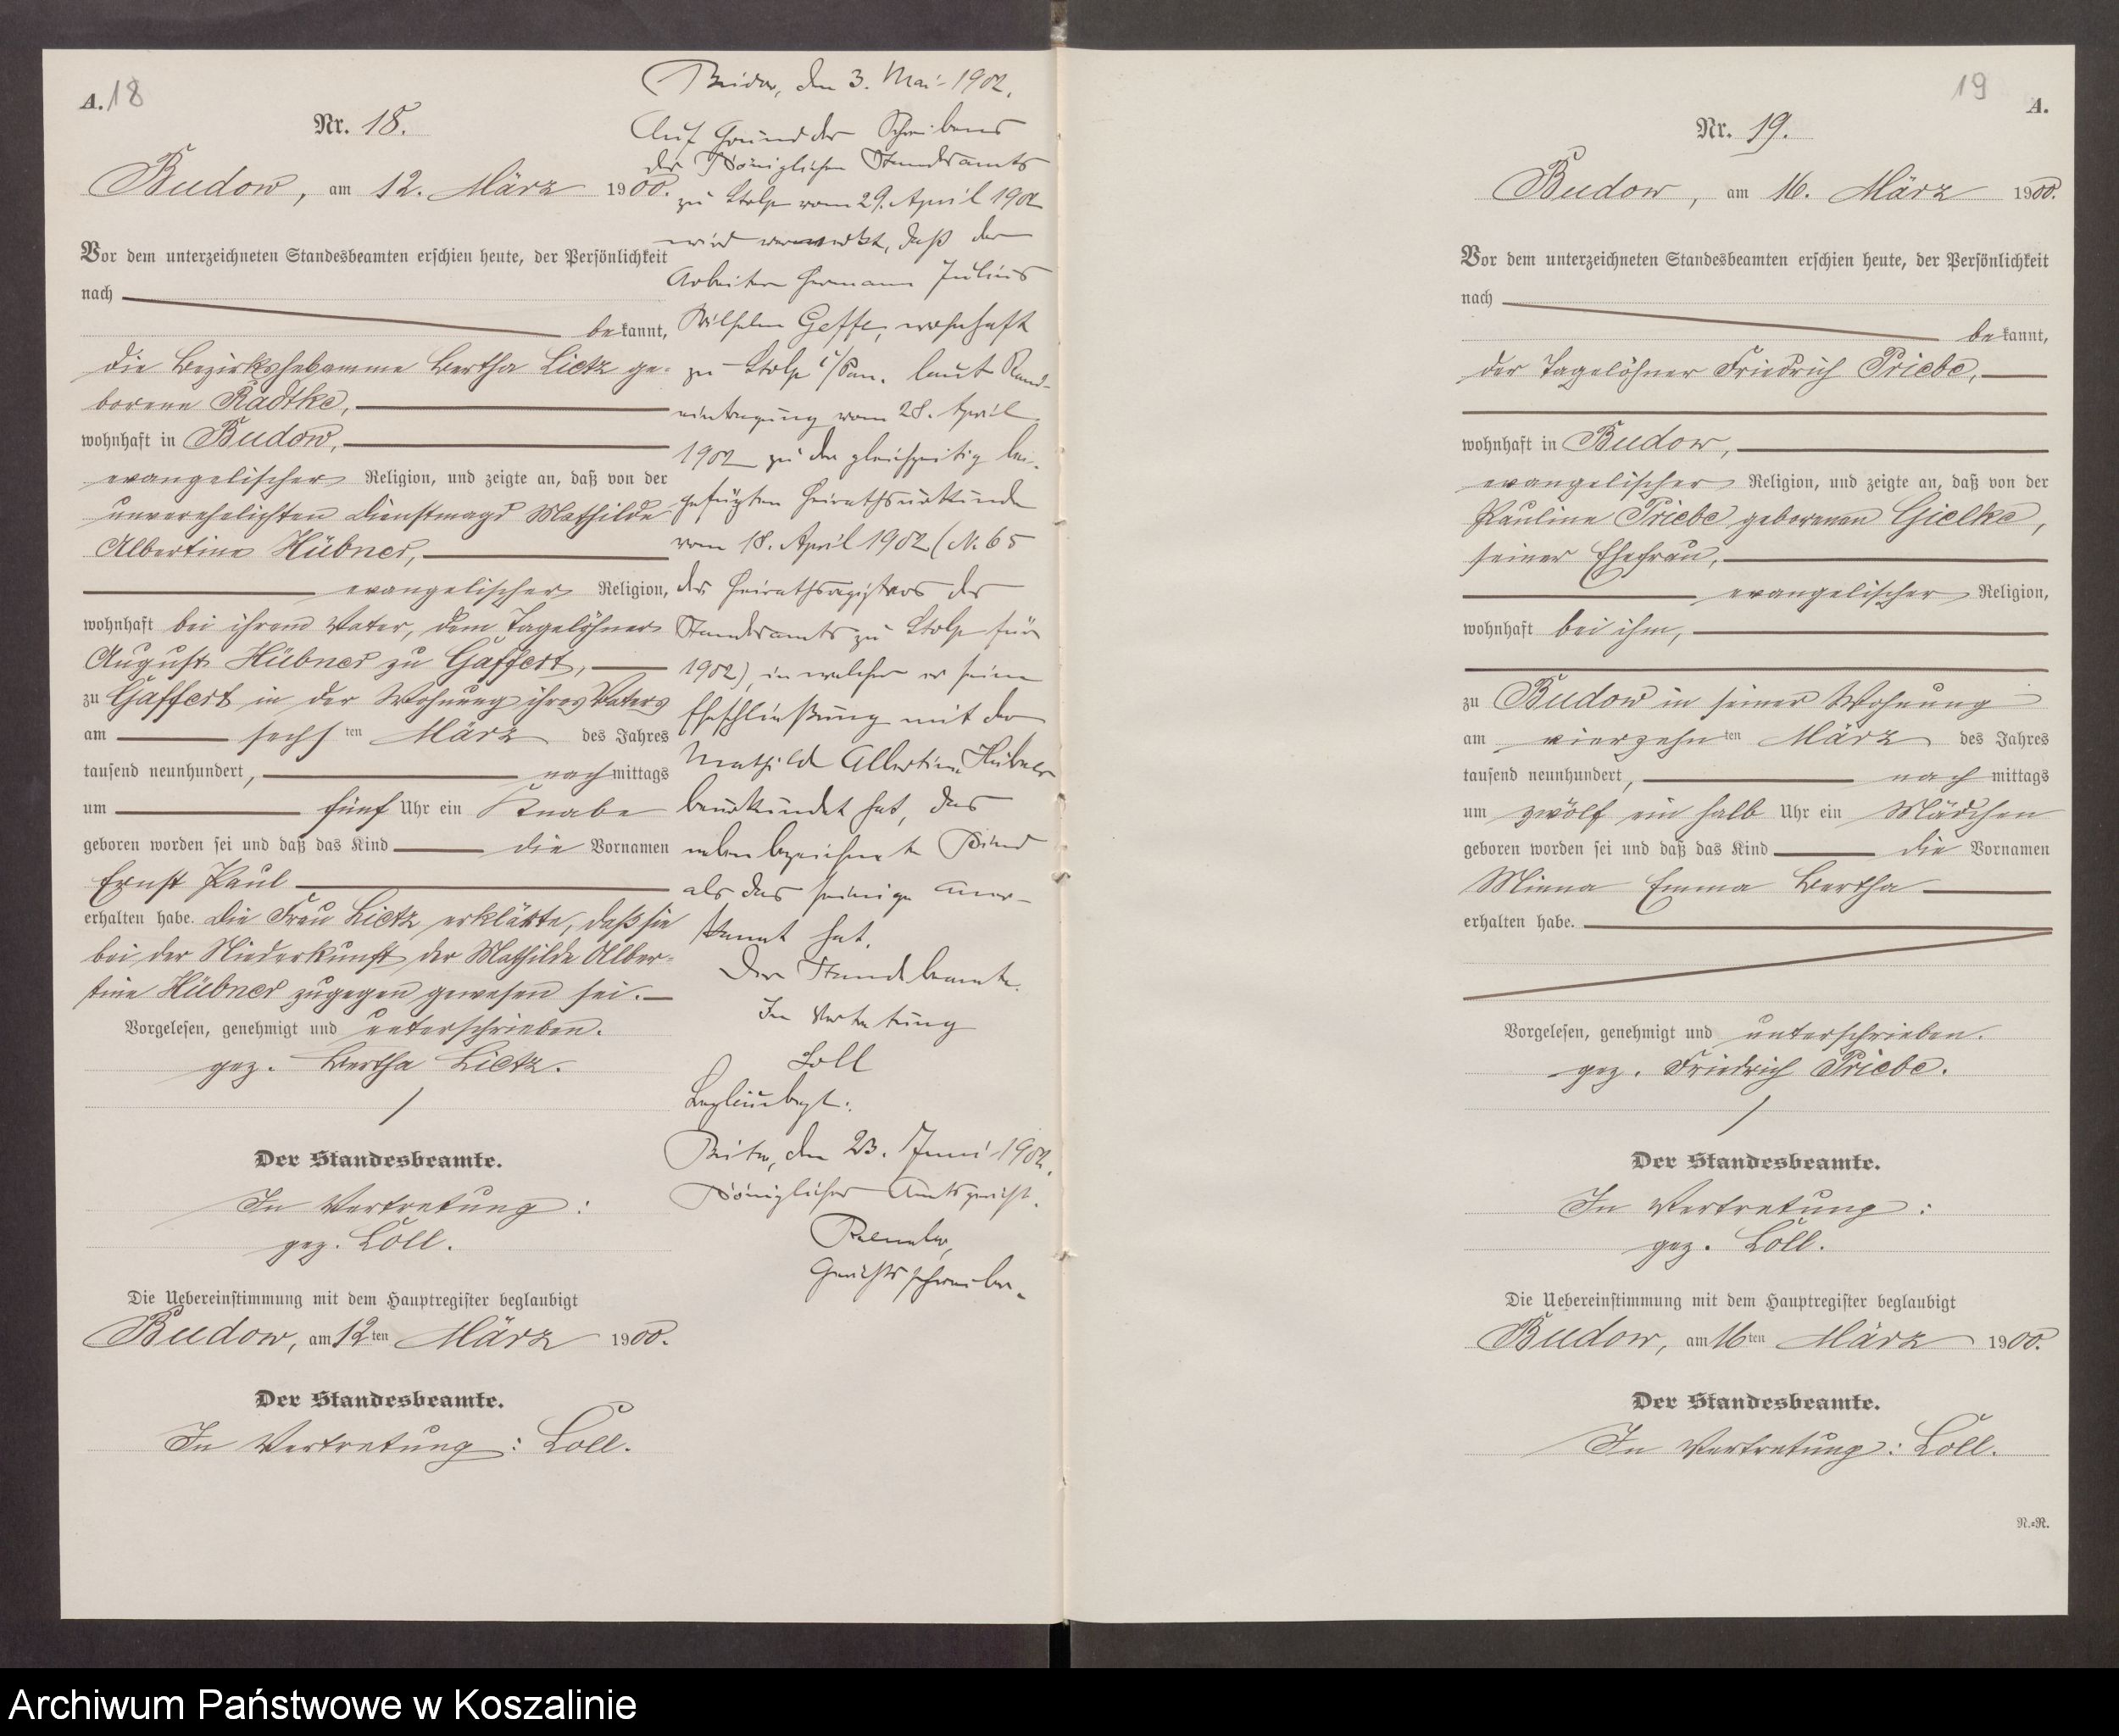 A. 18
Nr. 18.
Budow, am 12. März 1900.
Vor dem unterzeichneten Standesbeamten erschien heute, der Persönlichkeit
nach
bekannt,
die Bezirkshebamme Bertha Lietz ge-
borene Radtke,
wohnhaft in Budow,
evangelischer Religion, und zeigte an, daß von der
unverehelichten Dienstmagd Mathilde
Albertine Hübner,
evangelischer Religion,
wohnhaft bei ihrem Vater, dem Tagelöhner
August Hübner zu Gaffert,
zu Gaffert in der Wohnung ihres Vaters
am sechsten März des Jahres
tausend neunhundert, nachmittags
um fünf Uhr ein Knabe
geboren worden sei und daß das Kind die Vornamen
Ernst Paul
erhalten habe. Die Frau Lietz erklärte, daß sie
bei der Niederkunft der Mathilde Alber-
tine Hübner zugegen gewesen sei.
Vorgelesen, genehmigt und unterschrieben.
gez. Bertha Lietz.
Der Standesbeamte.
In Vertretung:
gez. Loll.
Die Uebereinstimmung mit dem Hauptregister beglaubigt
Budow, am 12ten März 1900.
Der Standesbeamte.
In Vertretung: Loll.
Budow, den 3. Mai 1902.
Auf Grund des Schreibens
des Königlichen Standesamts
zu Stolp vom 29. April 1902
wird vermerkt, daß der
Arbeiter Hermann Julius
Wilhelm Geffe, wohnhaft
zu Stolp i/Pom. laut Rand-
eintragung vom 28. April
1902 zu der gleichzeitig bei-
gefügten Heirathsurkunde
vom 18. April 1902 (N. 65
des Heirathsregisters des
Standesamts zu Stolp für
1902), in welcher er seine
Eheschließung mit der
Mathilde Albertine Hübner
beurkundet hat, das
nebenbezeichnete Kind
als das seinige aner-
kannt hat.
Der Standesbeamte.
In Vertretung
Loll
Beglaubigt:
den 23. Juni 1902.
Königliches Amtsgericht.
Gerichtsschreiber.
19 A.
Nr. 19.
Budow, am 16. März 1900.
Vor dem unterzeichneten Standesbeamten erschien heute, der Persönlichkeit
nach
bekannt,
der Tagelöhner Friedrich Priebe,
wohnhaft in Budow,
evangelischer Religion, und zeigte an, daß von der
Pauline Priebe geborenen Gielke,
seiner Ehefrau,
evangelischer Religion,
wohnhaft bei ihm,
zu Budow in seiner Wohnung
am vierzehnten März des Jahres
tausend neunhundert, nachmittags
um zwölf ein halb Uhr ein Mädchen
geboren worden sei und daß das Kind die Vornamen
Minna Emma Bertha
erhalten habe.
Vorgelesen, genehmigt und unterschrieben.
gez. Friedrich Priebe.
Der Standesbeamte.
In Vertretung:
gez. Loll.
Die Uebereinstimmung mit dem Hauptregister beglaubigt
Budow, am 16ten März 1900.
Der Standesbeamte.
In Vertretung: Loll.
N.=N.
Archiwum Państwowe w Koszalinie